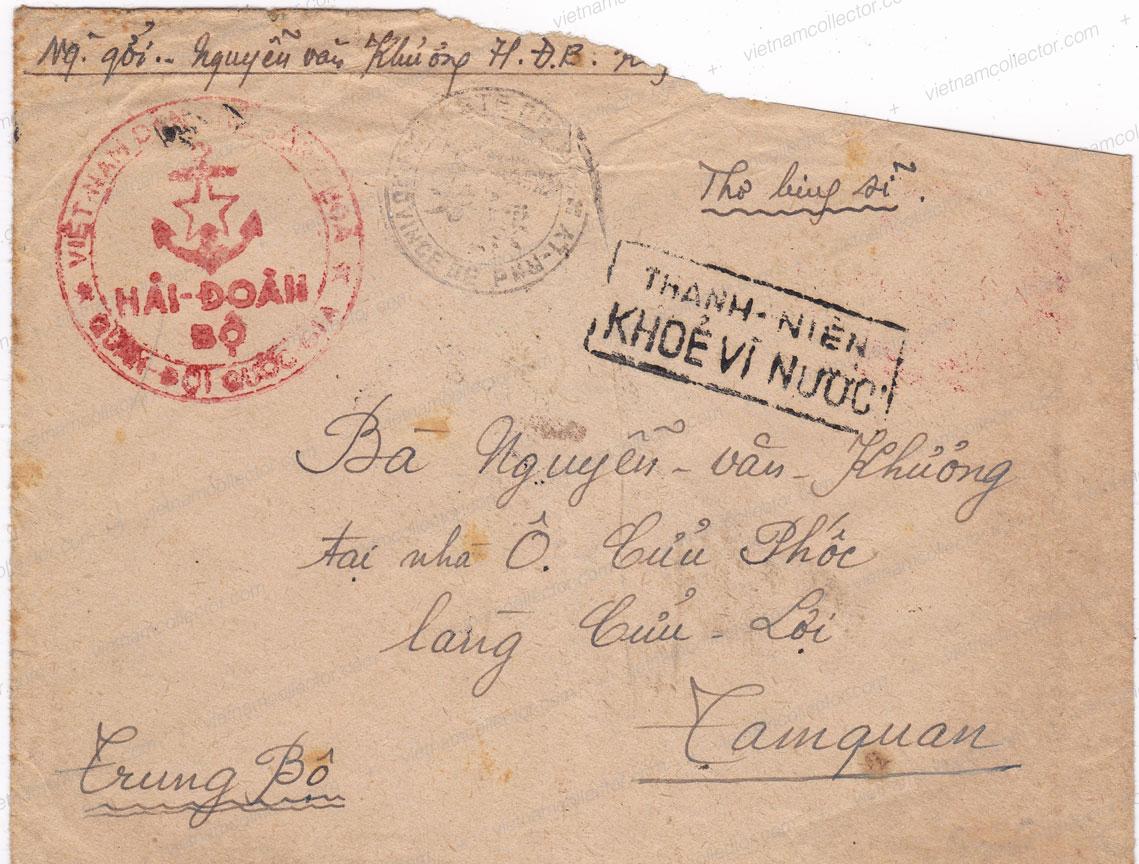 Ng. gởi.- Nguyễn văn Khưởng H.Đ.B.
VIỆT-NAM DÂN CHỦ CỘNG HOÀ
HẢI-ĐOÀN
BỘ
QUÂN ĐỘI QUỐC GIA
PROVINCE DE PHN-LY
Thơ bing sĩ.
THANH-NIÊN
KHOẺ VÌ NƯỚC
Bà Nguyễn-văn-Khưởng
tại nhà Ô. Cửu Phốc
làng Cửu-Lợi
Tamquan
Trung Bộ
vietnamcollector.com